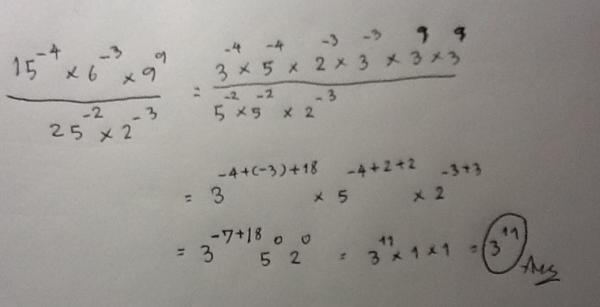 15⁻⁴ × 6⁻³ × 9⁹ / 25⁻² × 2⁻³ = 3⁻⁴ × 5⁻⁴ × 2⁻³ × 3⁻³ × 3⁹ × 3⁹ / 5⁻² × 5⁻² × 2⁻³
= 3⁻⁴⁺⁽⁻³⁾⁺¹⁸ × 5⁻⁴⁺²⁺² × 2⁻³⁺³
= 3⁻⁷⁺¹⁸ 5⁰ 2⁰ = 3¹¹ × 1 × 1 = 3¹¹ Ans